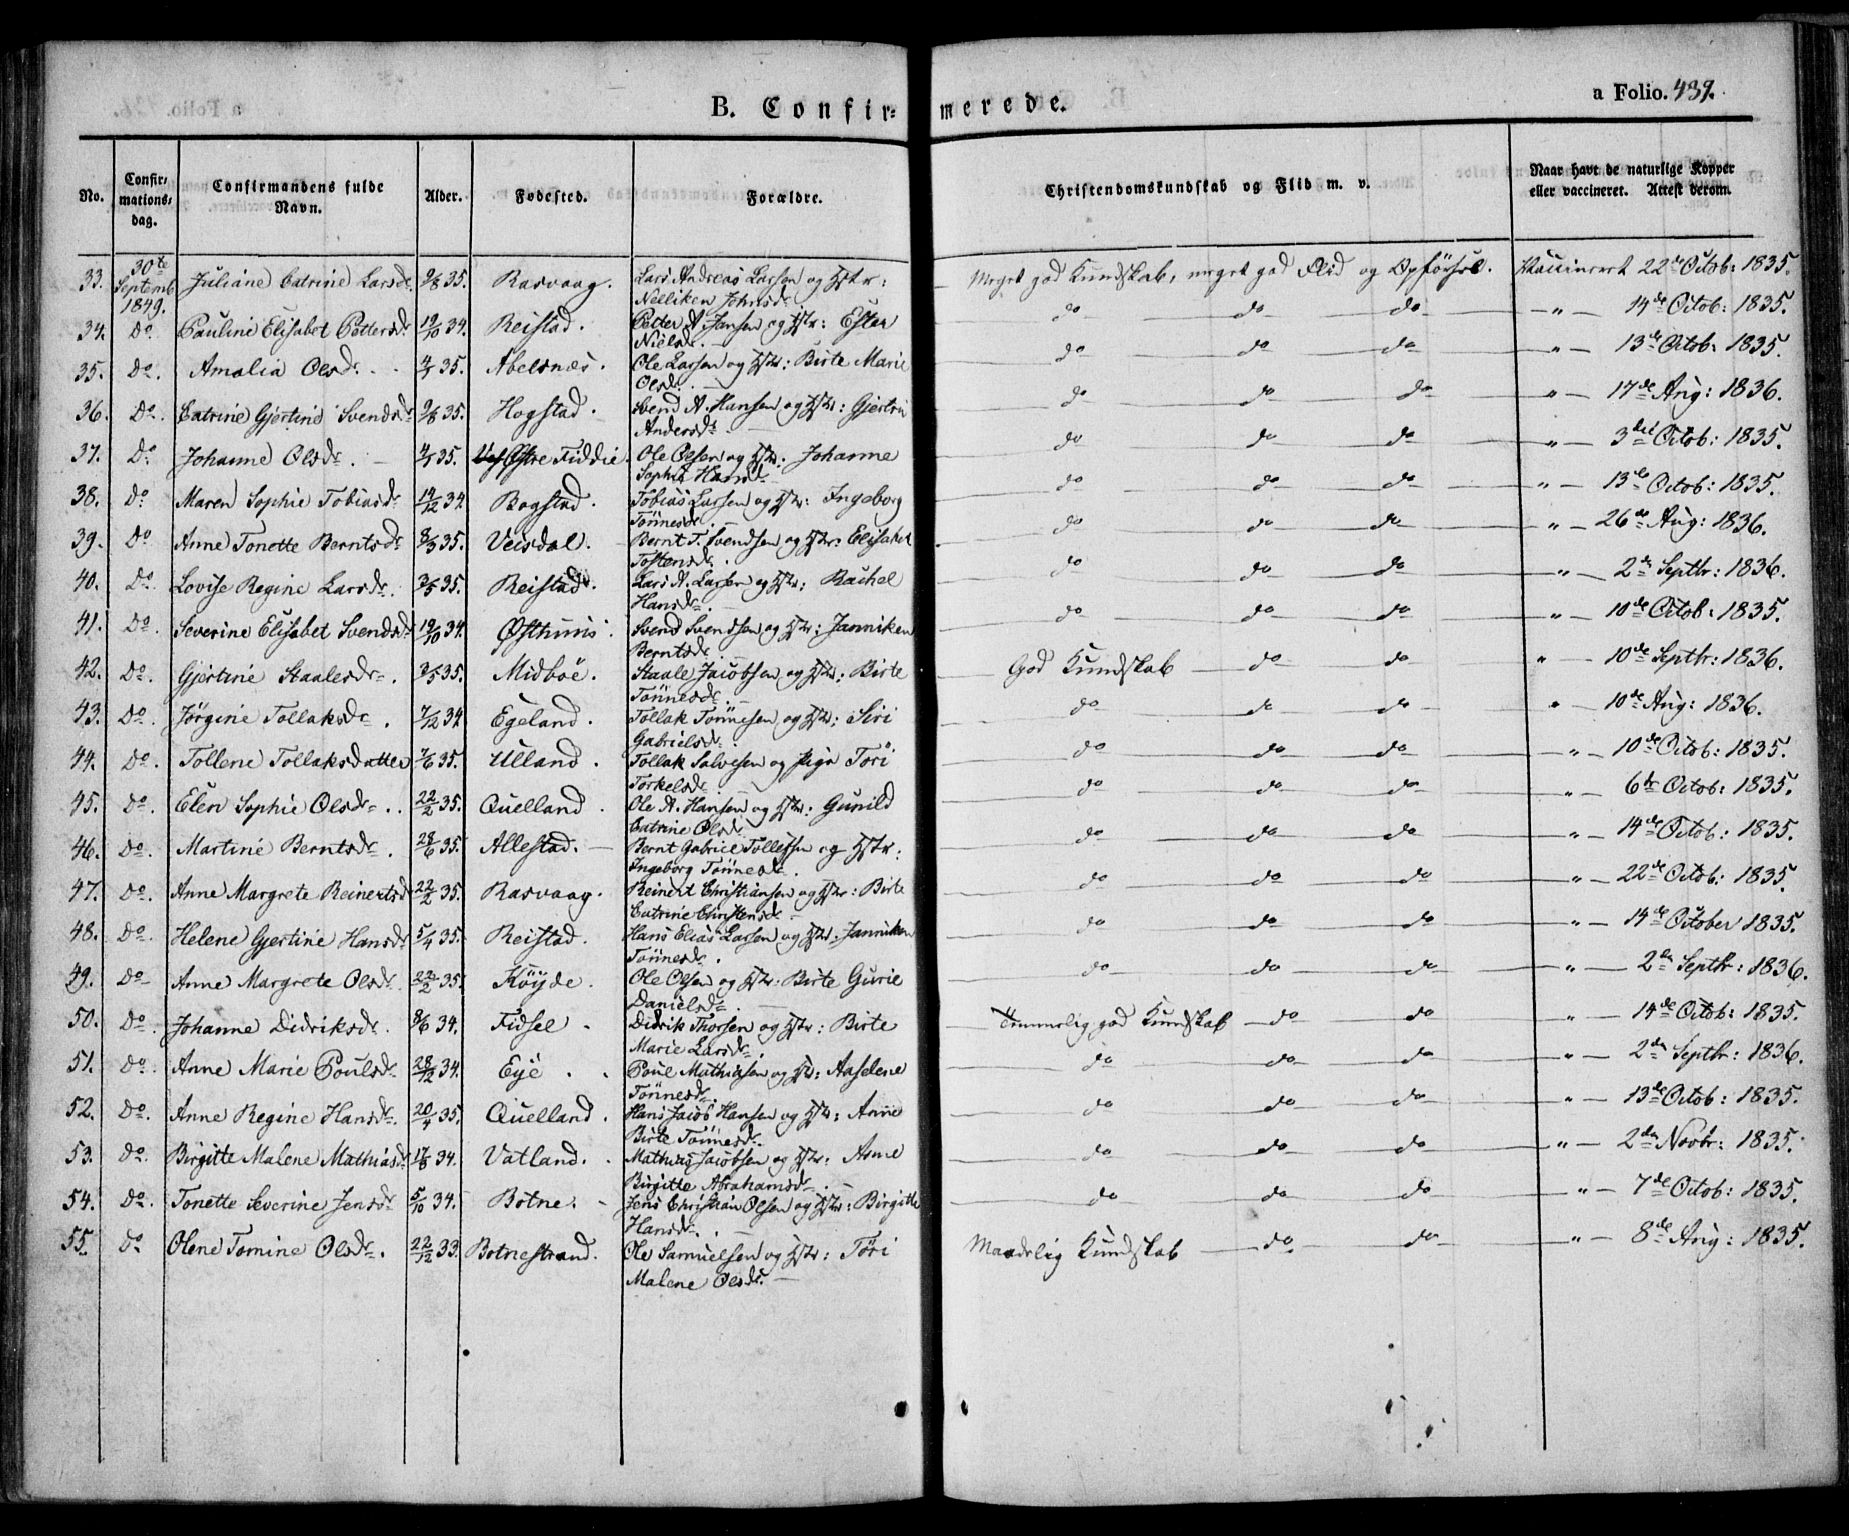 B. Confir- merede. a Folio. 439.
No. Confir-mations-dag. Confirmandens fulde Navn. Alder. Fødested. Forældre. Christendomskundskab og Flid m. v. Naar havt de naturlige Kopper eller vaccineret. Attest derom.
33. 30te Septemb 1849. Juliane Catrine Larsdr 9/8 35. Rasvaag. Lars Andreas Larsen og Hstr: Nelliken Johnsdr Meget god Kundskab, meget god Flid og Opførsel. Vaccineret 22de Octob: 1835.
34. Do. Pauline Elisabet Pettersdr 19/10 34. Reistad. Petter A. Jansen og Hstr: Ester Nielsdr do do do " 14de Octob: 1835.
35. Do. Amalia Olsdr. 35. Abelsnæs. Ole Larsen og Hstr: Birte Marie Olsdr. do do do " 13de Octob: 1835.
36. Do. Catrine Gjertine Svendsdr 9/8 35. Hogstad. Svend A. Hansen og Hstr: Andersdr do do do " 17de Aug: 1836.
37. Do. Johanne Olsdr. 35. Østre Fiddie. Ole Olsen og Hstr: Johanne Sophie Hansdr do do do " 3die Octob: 1835.
38. Do Maren Sophie Tobiasdr 14/12 34. Bogstad. Tobias Larsen og Hstr: Ingeborg Tönnesdr. do do do " 13de Octob: 1835.
39. Do Anne Tonette Berntsdr 8/3 35. Veisdal. Bernt T. Svendsen og Hstr: Elisabet Tostensdr. do do do " 26de Aug: 1836.
40. Do Lovise Regine Larsdr. 3/5 35. Reistad. Lars A. Larsen og Hstr: Rachel Hansdr. do do do " 2den Septbr: 1836.
41. Do. Severine Elisabet Svendsdr 19/10 34. Østhuus. Svend Svendsen og Hstr: Janniken Berntsdr. do do do " 10de Octob: 1835.
42. Do. Gjertine Staalesdr. 3/5 35. Midböe. Staale Jacobsen og Hstr: Birte Tönnesdr. God Kundskab do do " 10de Septbr: 1836.
43. Do. Jörgine Tollaksdr. 7/12 34. Egeland. Tollak Tönnesen og Hstr: Siri Gabrielsdr. do do do " 10de Aug: 1836.
44. Do. Tollene Tollaksdatter 7/6 35. Ulland. Tollak Salvesen og Pige Töri Torkelsdr. do do do " 10de Octob: 1835.
45. Do. Elen Sophie Olsdr. 22/2 35. Quelland. Ole A. Hansen og Hstr: Gunild Catrine Olsdr. do do do " 6te Octob: 1835.
46. Do. Martine Berntsdr. 28/6 35. Allestad. Bernt Gabriel Tollefsen og Hstr: Ingeborg Tönnesdr. do do do " 14de Octob: 1835.
47. Do. Anne Margrete Reinertsd 22/2 35. Rasvaag. Reinert Christiansen og Hstr: Birte Catrine Christensdr do do do " 22de Octob: 1835.
48. Do. Helene Gjertine Hansdr 5/4 35. Reistad. Hans Elias Larsen og Hstr: Janniken Tönnesdr. do do do " 14de October 1835.
49. Do Anne Margrete Olsdr. 22/2 35. Köyde. Ole Olsen og Hstr: Birte Gurie Danielsdr. do do do " 2den Septbr: 1836.
50. Do. Johanne Didriksdr. 8/6 34. Fidsel. Didrik Thorsen og Hstr: Birte Marie Larsdr. Temmelig god Kundskab do do " 14de Octob: 1835.
51. Do. Anne Marie Poulsdr 28/12 34. Eye. Poul Mathiasen og Hstr: Aaselene Tönnesdr. do do do " 2den Septbr: 1836.
52. Do. Anne Regine Hansdr. 20/4 35. Quelland. Hans Jacob Hansen og Hstr: Anne Birte Tönnesdr. do do do " 13de Octob: 1835.
53. Do. Birgitte Malene Mathiasd 17/8 34. Vatland. Mathias Jacobsen og Hstr: Anne Birgitte Abrahamsdr. do do do " 2den Novbr: 1835.
54. Do. Tonette Severine Jensdr 5/10 34. Botne. Jens Christian Olsen og Hstr: Birgitte Hansdr. do do do " 7de Octob: 1835.
55. Do Olene Tomine Olsdr. 22/12 33. Botnestrand. Ole Samuelsen og Hstr: Töri Malene Olsdr. Maadelig Kundskab do do " 8de Aug: 1835.